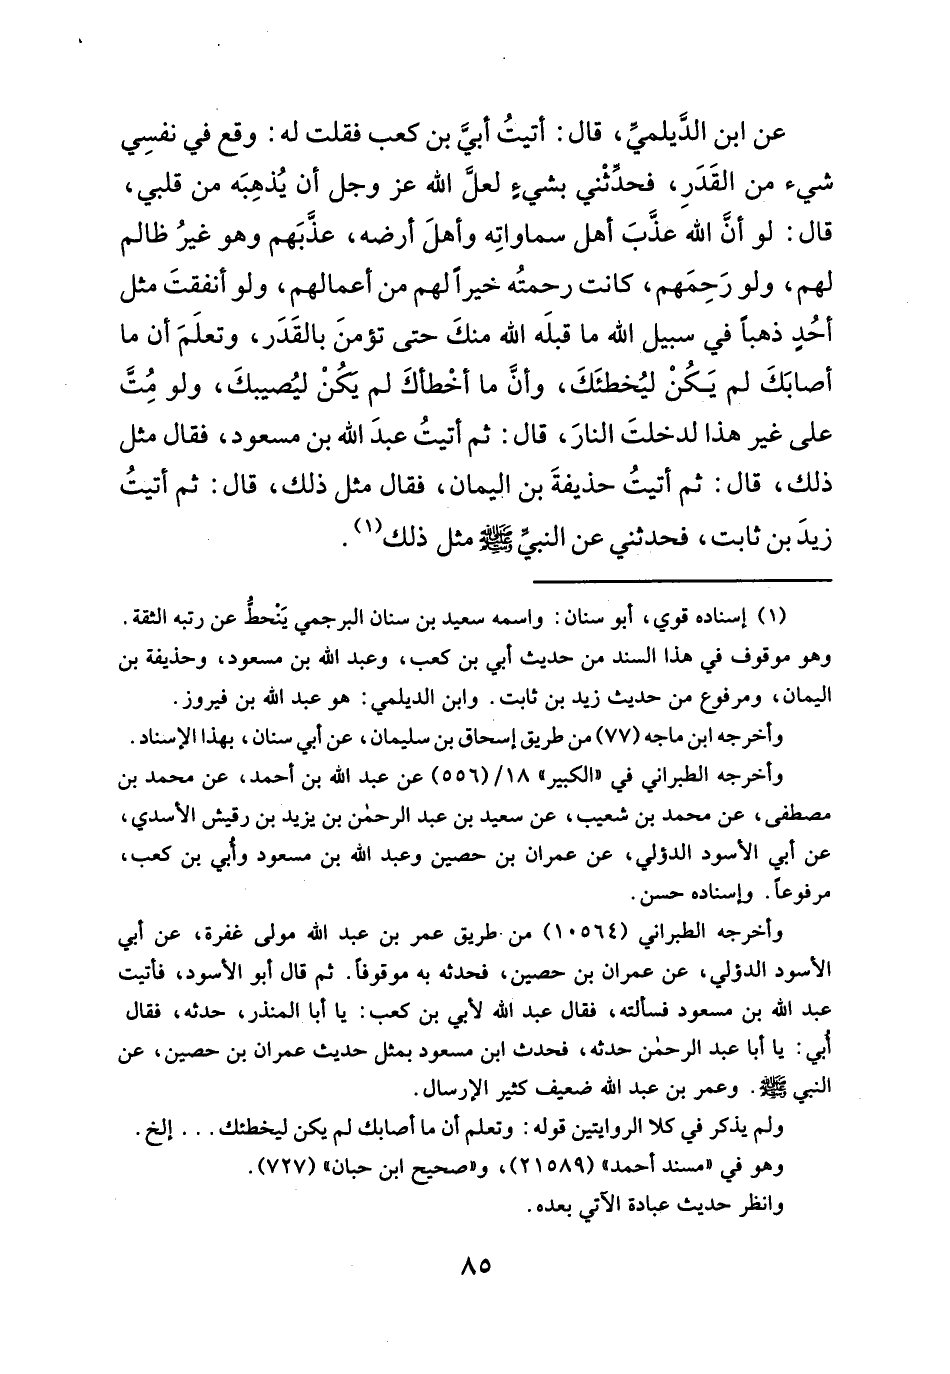 عن ابن الدَّيلميِّ، قال: أتيتُ أبيَّ بن كعب فقلت له: وقع في نفسِي
شيء من القَدَرِ، فحدِّثْني بشيءٍ لعلَّ الله عز وجل أن يُذهِبَه من قلبي،
قال: لو أنَّ الله عذَّبَ أهل سماواتِه وأهلَ أرضه، عذَّبَهم وهو غيرُ ظالم
لهم، ولو رَحِمَهم، كانت رحمتُه خيراً لهم من أعمالهم، ولو أنفقتَ مثل
أحُدٍ ذهباً في سبيل الله ما قبلَه الله منكَ حتى تؤمنَ بالقَدَر، وتعلَمَ أن ما
أصابَكَ لم يَكُنْ ليُخطئَكَ، وأنَّ ما أخْطأكَ لم يَكُنْ ليُصيبكَ، ولو مُِتَّ
على غير هذا لدخلتَ النارَ، قال: ثم أتيتُ عبدَ الله بن مسعود، فقال مثل
ذلك، قال: ثم أتيتُ حذيفةَ بن اليمان، فقال مثل ذلك، قال: ثم أتيتُ
زيدَ بن ثابت، فحدثني عن النبيِّ ﷺ مثل ذلك(١).
(١) إسناده قوي، أبو سنان: واسمه سعيد بن سنان البرجمي يَنْحطُّ عن رتبه الثقة.
وهو موقوف في هذا السند من حديث أبي بن كعب، وعبد الله بن مسعود، وحذيفة بن
اليمان، ومرفوع من حديث زيد بن ثابت. وابن الديلمي: هو عبد الله بن فيروز.
وأخرجه ابن ماجه (٧٧) من طريق إسحاق بن سليمان، عن أبي سنان، بهذا الإسناد.
وأخرجه الطبراني في «الكبير» ١٨/ (٥٥٦) عن عبد الله بن أحمد، عن محمد بن
مصطفى، عن محمد بن شعيب، عن سعيد بن عبد الرحمٰن بن يزيد بن رقيش الأسدي،
عن أبي الأسود الدؤلي، عن عمران بن حصين وعبد الله بن مسعود وأُبي بن كعب،
مرفوعاً. وإسناده حسن.
وأخرجه الطبراني (١٠٥٦٤) من طريق عمر بن عبد الله مولى غفرة، عن أبي
الأسود الدؤلي، عن عمران بن حصين، فحدثه به موقوفاً. ثم قال أبو الأسود، فأتيت
عبد الله بن مسعود فسألته، فقال عبد الله لأبي بن كعب: يا أبا المنذر، حدثه، فقال
أُبي: يا أبا عبد الرحمٰن حدثه، فحدث ابن مسعود بمثل حديث عمران بن حصين، عن
النبي ﷺ. وعمر بن عبد الله ضعيف كثير الإرسال.
ولم يذكر في كلا الروايتين قوله: وتعلم أن ما أصابك لم يكن ليخطئك... إلخ.
وهو في «مسند أحمد» (٢١٥٨٩)، و«صحيح ابن حبان» (٧٢٧).
وانظر حديث عبادة الآتي بعده.
٨٥